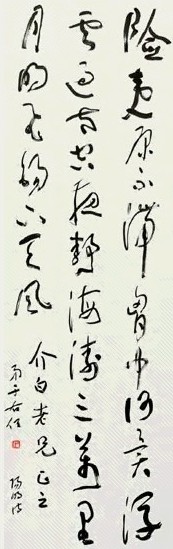 險夷原不滯胸中何異浮
雲過太空夜靜海濤三萬里
月明飛錫下天風 介白老兄正之
弟于右任
陽明詩